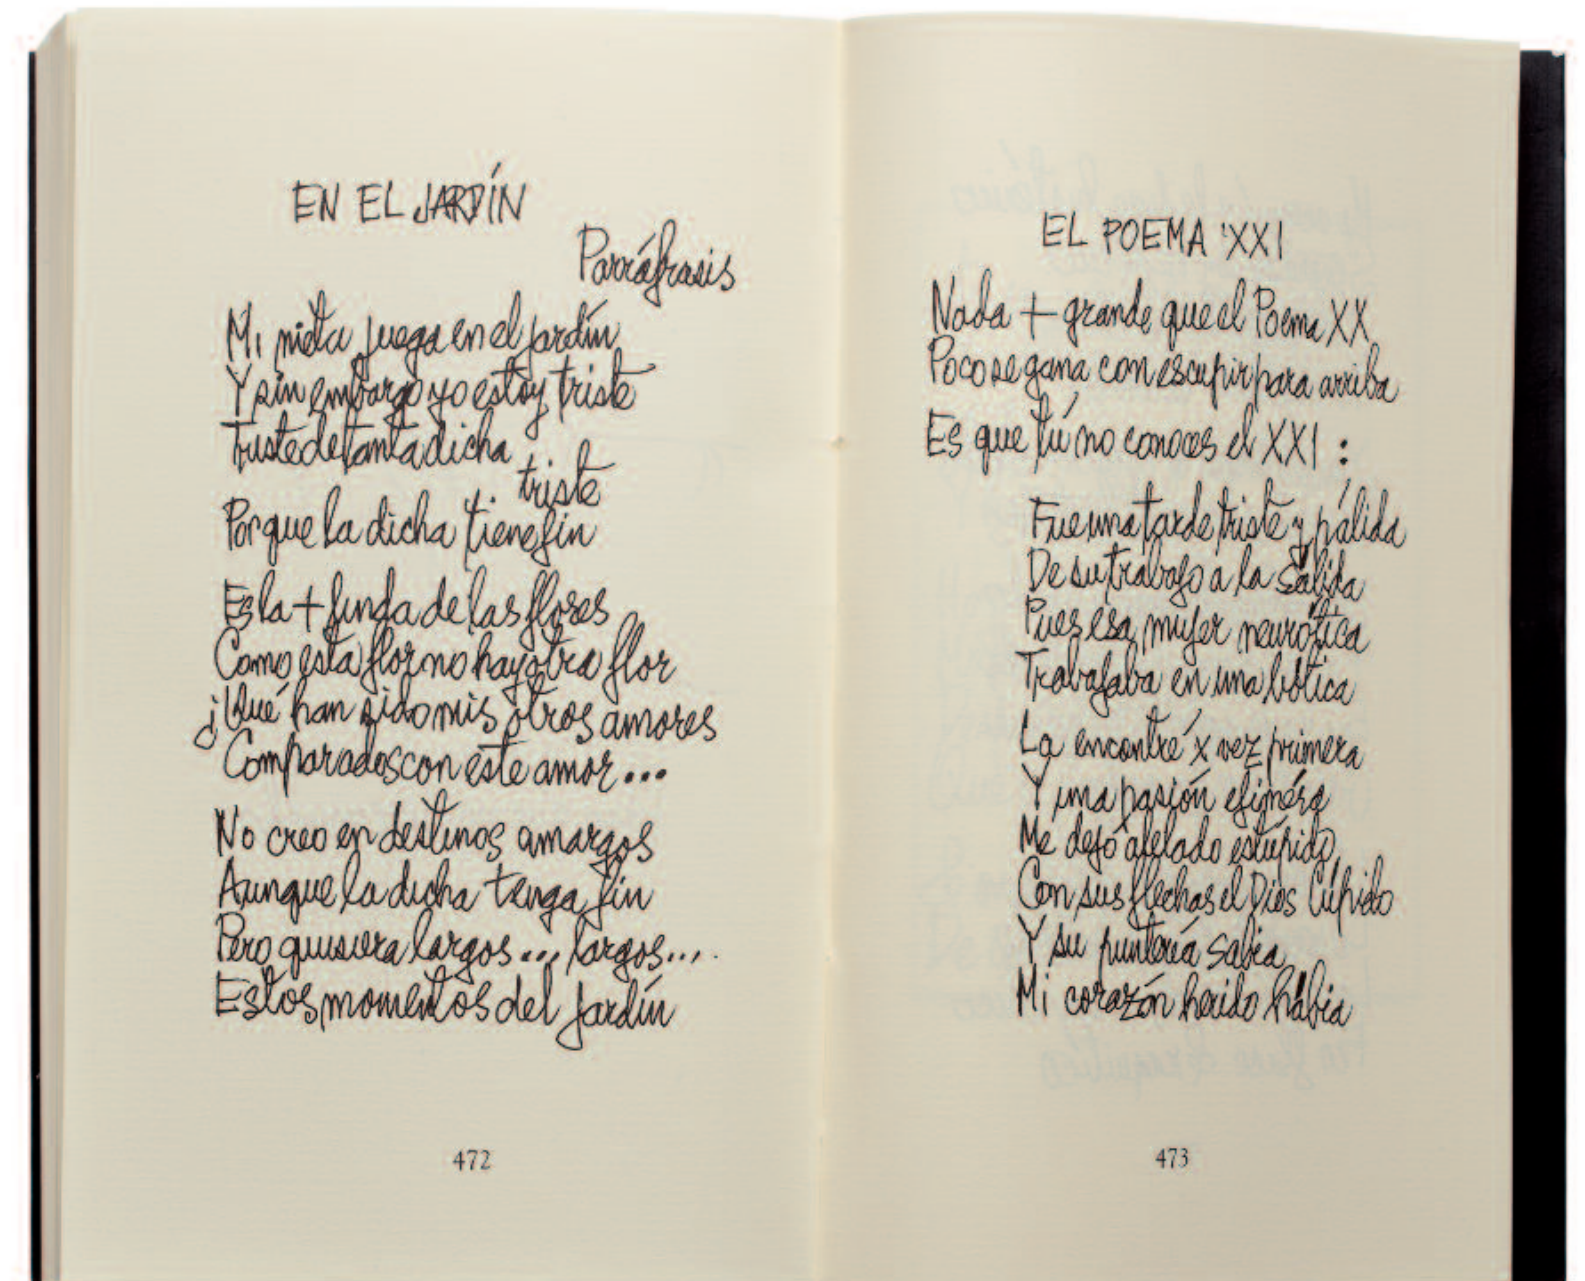 EN EL JARDÍN
Parráfrasis
Mi nieta juega en el jardín
Y sin embargo yo estoy triste
Triste de tanta dicha
triste
Porque la dicha tiene fin
Es la + linda de las flores
Como esta flor no hay otra flor
¿Qué han sido mis otros amores
Comparados con este amor...
No creo en destinos amargos
Aunque la dicha tenga fin
Pero quisiera largos... largos...
Estos momentos del jardín
472
EL POEMA XXI
Nada + grande que el Poema XX
Poco se gana con escupir para arriba
Es que tú no conoces el XXI :
Fue una tarde triste y pálida
De su trabajo a la sálida
Pues esa mujer neurótica
Trabajaba en una bótica
La encontré x vez primera
Y una pasión efiméra
Me dejó alelado estúpido
Con sus flechas el Dios Cúpido
Y su puntería sabia
Mi corazón herido hábia
473